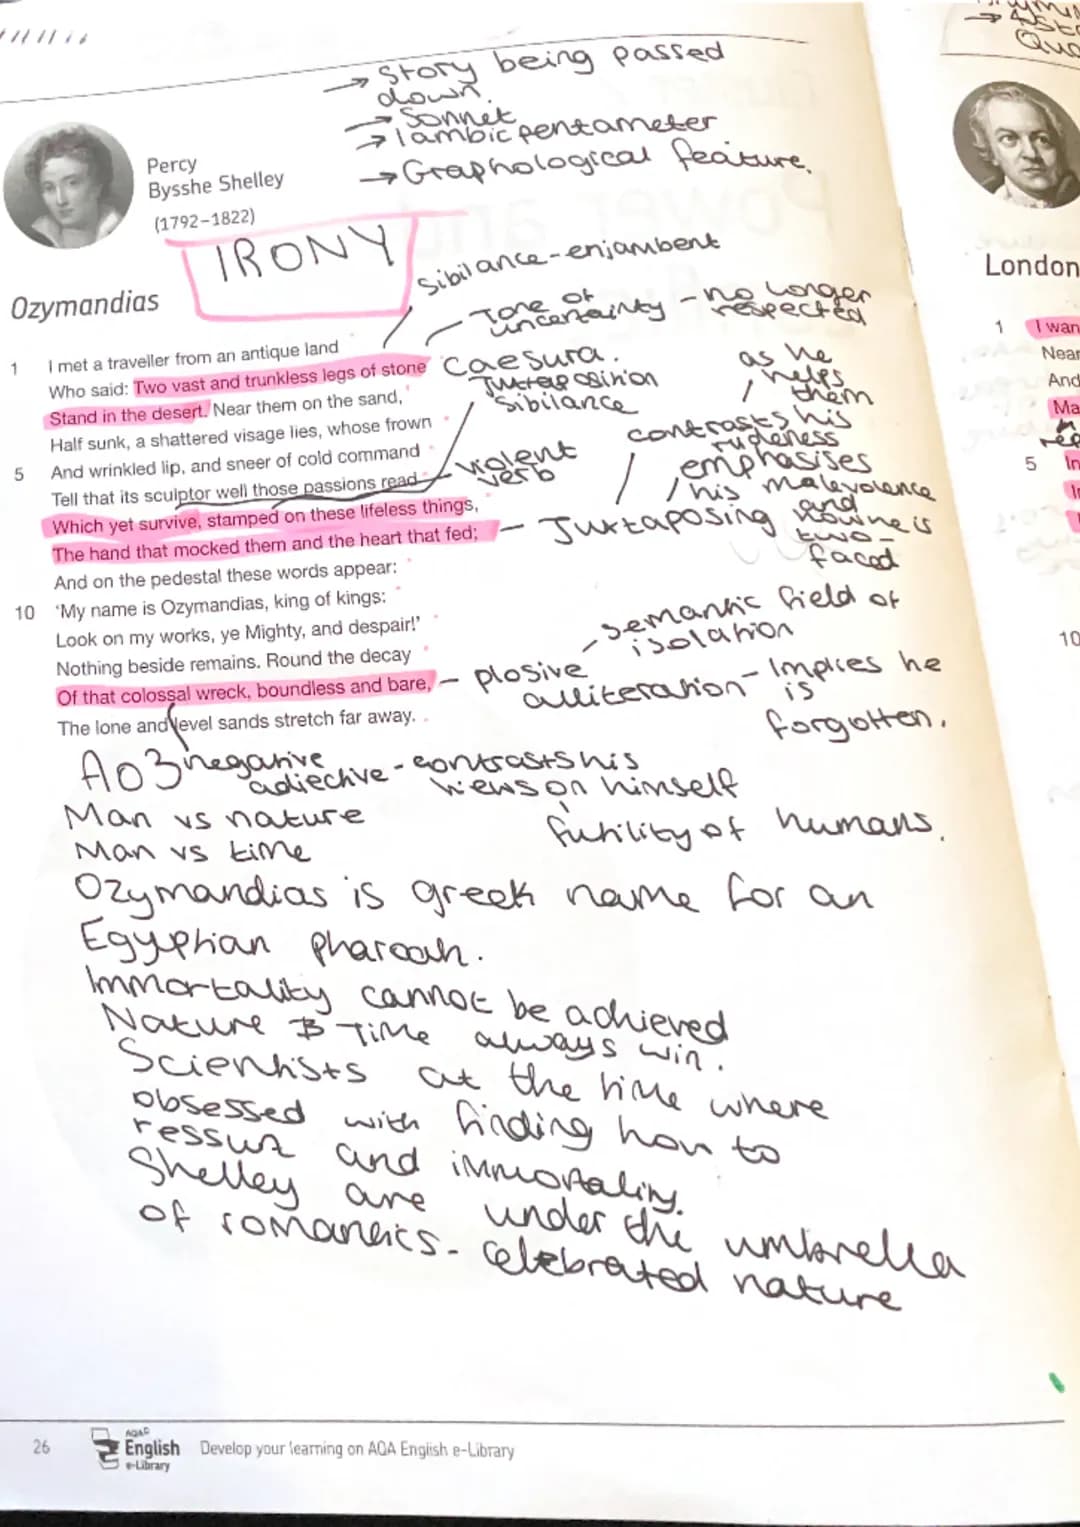 → Story being passed
down.
→ Sonnet
→ Iambic pentameter
→ Graphological feature.
Percy
Bysshe Shelley
(1792–1822)
IRONY
Sibilance - enjambent
Ozymandias
Tone of
uncertainty - no longer
respected
1 I met a traveller from an antique land
Who said: Two vast and trunkless legs of stone
Stand in the desert. Near them on the sand,
Half sunk, a shattered visage lies, whose frown
5 And wrinkled lip, and sneer of cold command
Tell that its sculptor well those passions read
Which yet survive, stamped on these lifeless things,
The hand that mocked them and the heart that fed;
And on the pedestal these words appear:
10 ‘My name is Ozymandias, king of kings:
Look on my works, ye Mighty, and despair!’
Nothing beside remains. Round the decay
Of that colossal wreck, boundless and bare,
The lone and level sands stretch far away.
Caesura.
Juxtaposition
Sibilance
as he
helps
them
contrasts his
rudeness
violent
verb
emphasises
his malevolence
and
Juxtaposing
is
two-
faced
semantic field of
isolation
plosive
alliteration - Implies he
is
forgotten.
AO3
negative
adjective - contrasts his
views on himself
Man vs nature
futility of humans.
Man vs time
Ozymandias is greek name for an
Egyptian pharoah.
Immortality cannot be achieved
Nature & Time always win.
Scientists at the time where
obsessed with finding how to
ressur and immortality.
Shelley are under the umbrella
of romantics - celebrated nature
26
AQA
English
e-Library
Develop your learning on AQA English e-Library
London
1 I wan
Near
And
Ma
5 In
10